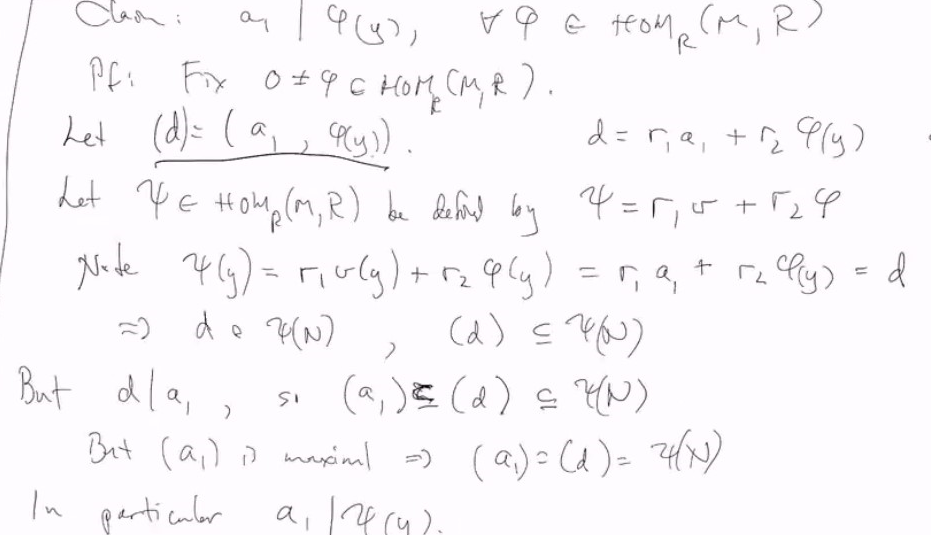 Claim: a₁ | φ(y), ∀ φ ∈ HOM_R(M, R)
Pf: Fix 0 ≠ φ ∈ HOM_R(M, R).
Let (d) = (a₁, φ(y)). d = r₁a₁ + r₂ φ(y)
Let ψ ∈ HOM_R(M, R) be defined by ψ = r₁ν + r₂φ
Note ψ(y) = r₁ν(y) + r₂ φ(y) = r₁ a₁ + r₂ φ(y) = d
⇒ d ∈ ψ(N), (d) ⊆ ψ(N)
But d | a₁, so (a₁) ⊆ (d) ⊆ ψ(N)
But (a₁) is maximal ⇒ (a₁) = (d) = ψ(N)
In particular a₁ | ψ(y).